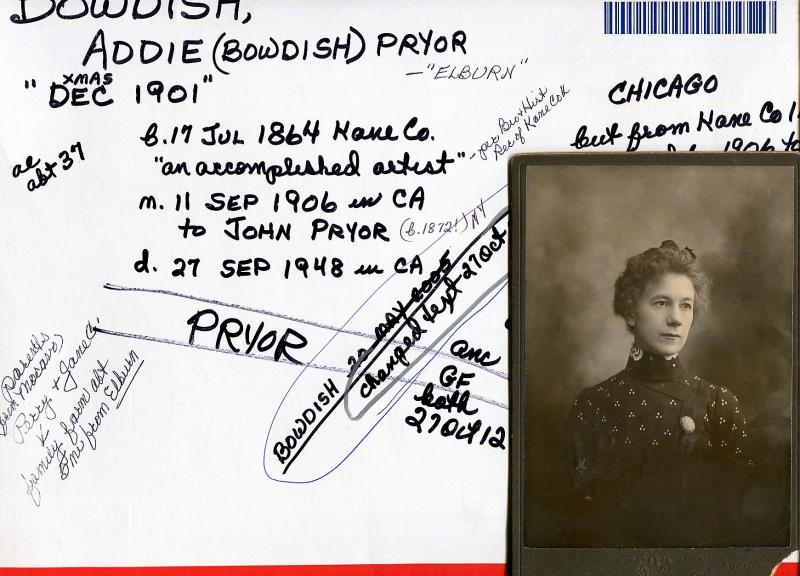 BOWDISH,
ADDIE (BOWDISH) PRYOR
— "ELBURN"
" XMAS
DEC 1901"
CHICAGO
but from Kane Co
1906 to
ae
abt 37
b. 17 JUL 1864 Kane Co.
"an accomplished artist" - per Bio & Hist
Rec of Kane Co IL
m. 11 SEP 1906 in CA
to JOHN PRYOR (b. 1872!) NY
d. 27 SEP 1948 in CA
PRYOR
BOWDISH 20 MAY 2005
changed text 27 Oct
anc
GF
both
27 Oct 12
parents
Perry & Jane C.
&
family farm abt
1 mi from Elburn